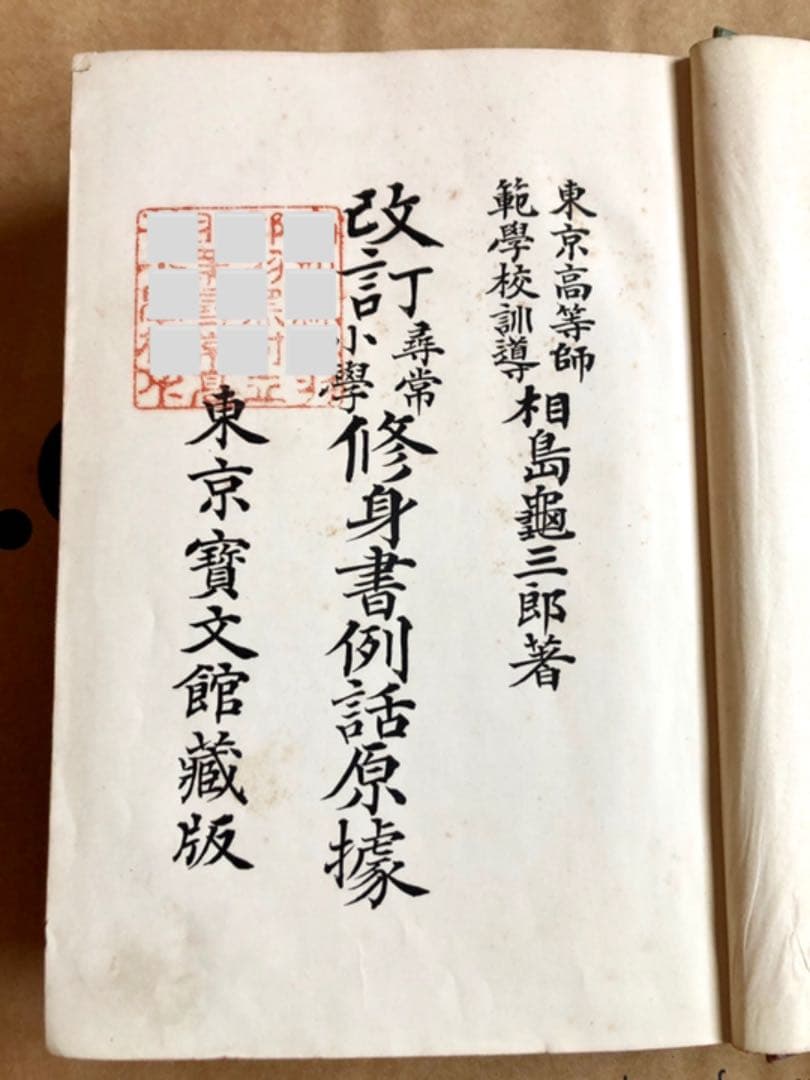 東京高等師
範學校訓導
相島龜三郎著
改訂尋常
小學修身書例話原據
東京寶文館藏版